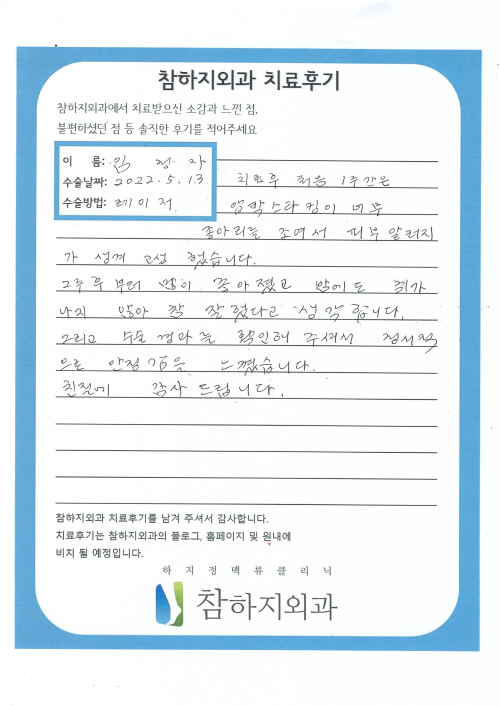 참하지외과 치료후기
참하지외과에서 치료받으신 소감과 느낀 점,
불편하셨던 점 등 솔직한 후기를 적어주세요
이 름: 임 정 자
수술날짜: 2022. 5. 13
수술방법: 레이저
치료후 처음 1주간은
압박스타킹이 너무
종아리를 조여서 피부알러지
가 생겨 고생 했습니다.
2주후부터 많이 좋아졌고 밤에도 쥐가
나지 않아 참 잘했다고 생각합니다.
그리고 수술 경과를 확인해 주셔서 정서적
으로 안정감을 느꼈습니다.
친절에 감사드립니다.
참하지외과 치료후기를 남겨 주셔서 감사합니다.
치료후기는 참하지외과의 블로그, 홈페이지 및 원내에
비치 될 예정입니다.
하지정맥류클리닉
참하지외과